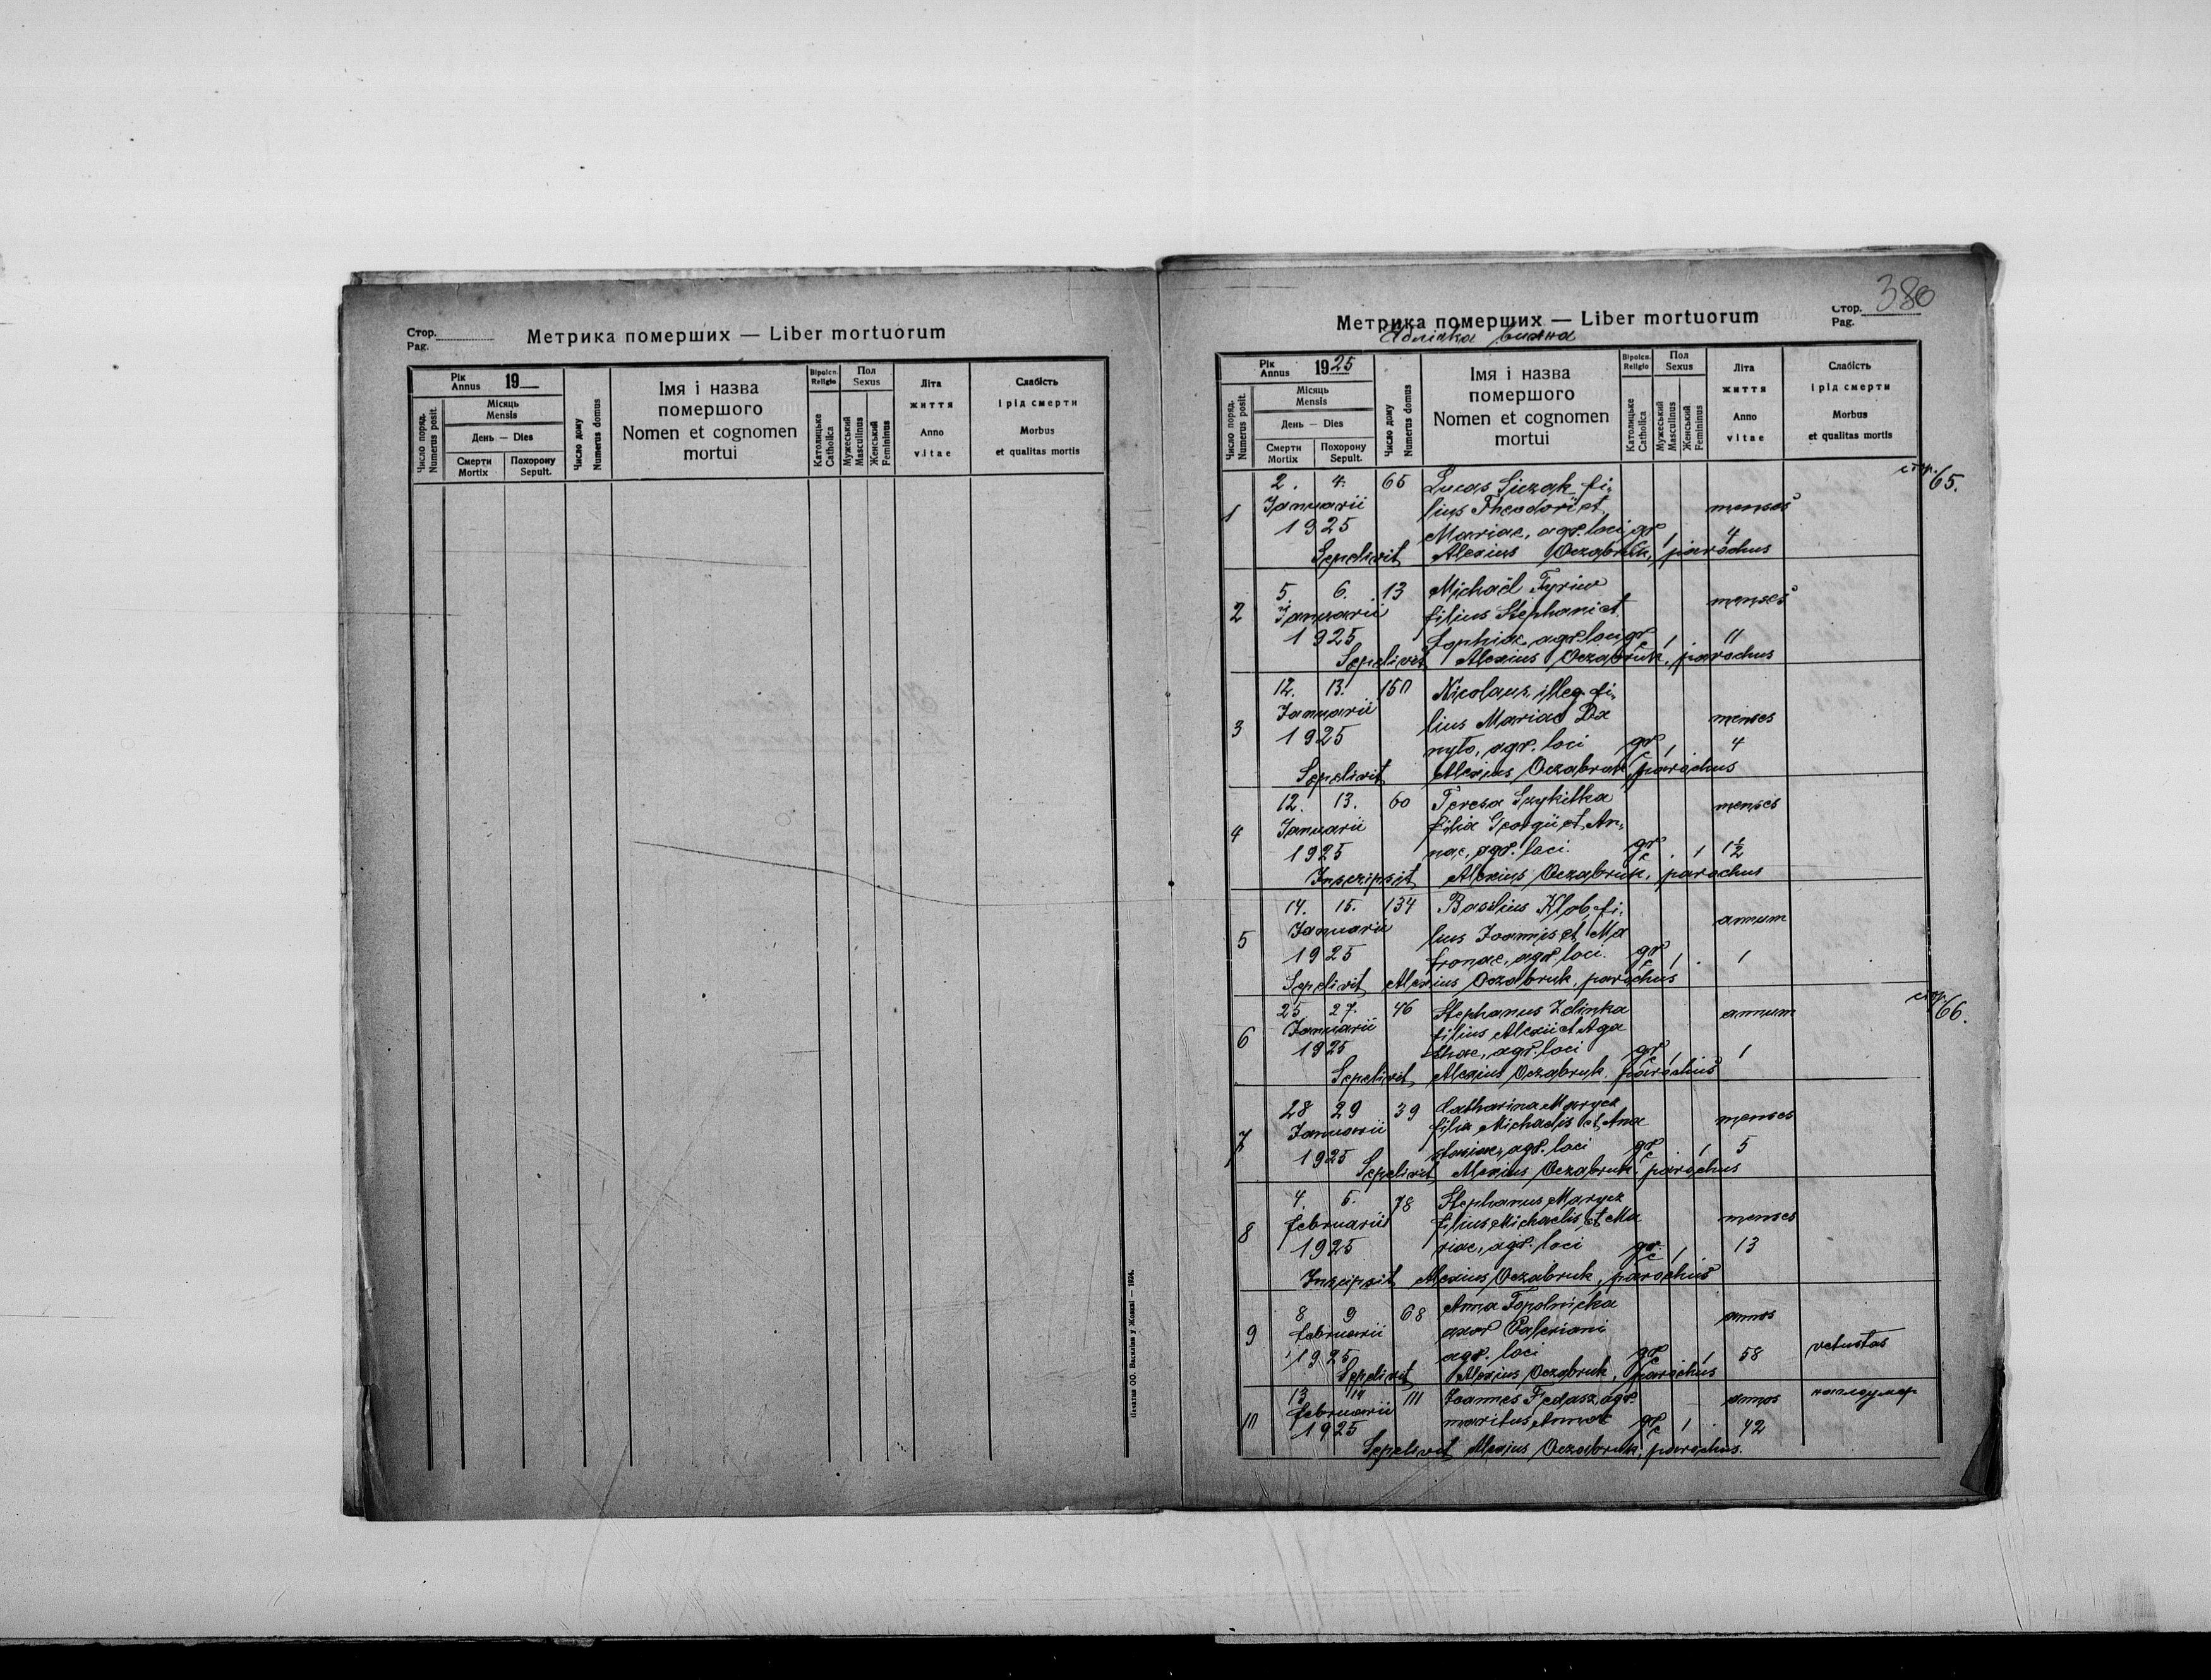 Стор.
Pag.
Метрика померших — Liber mortuorum
Рік
Annus 19
Місяць
Mensis
День — Dies
Смерти
Mortix
Похорону
Sepult.
Число поряд.
Numerus posit.
Число дому
Numerus domus
Імя і назва
помершого
Nomen et cognomen
mortui
Віроісп.
Religio
Католицьке
Catholica
Пол
Sexus
Мужеський
Masculinus
Женський
Femininus
Літа
життя
Anno
vitae
Слабість
і рід смерти
Morbus
et qualitas mortis
Печатня ОО. Василіян у Жовкві — 1924.
380
Стор.
Pag.
Метрика померших — Liber mortuorum
Рік
Annus 1925
Місяць
Mensis
День — Dies
Смерти
Mortix
Похорону
Sepult.
Число поряд.
Numerus posit.
Число дому
Numerus domus
Імя і назва
помершого
Nomen et cognomen
mortui
Віроісп.
Religio
Католицьке
Catholica
Пол
Sexus
Мужеський
Masculinus
Женський
Femininus
Літа
життя
Anno
vitae
Слабість
і рід смерти
Morbus
et qualitas mortis
стр. 65.
2. 4. 65 Lucas Siczak fi-
1 Januarii lius Theodori et menses
1925 Mariae, agr. loci gr c 1 4
Sepelivit Alexius Oczabruk, parochus
5. 6. 13 Michaël
2 Januarii filius Stephani et menses
1925 Sophiae, agr. loci gr c 1 11
Sepelivit Alexius Oczabruk, parochus
12. 13. 150 Nicolaus, illeg. fi-
3 Januarii lius Mariae Da menses
1925 nyło, agr. loci gr c 1 4
Sepelivit Alexius Oczabruk, parochus
12. 13. 60 Teresa Szykitka menses
4 Januarii filia Georgii et An-
1925 nae, agr. loci. gr c . 1 1½
Inscripsit Alexius Oczabruk, parochus
14. 15. 134 Basilius Kłob, fi-
5 Januarii lius Joannis et Ma annum
1925 tronae, agr. loci. gr c 1 . 1
Sepelivit Alexius Oczabruk, parochus
стр. 66.
25. 27. 46 Stephanus Zelinka annum
6 Januarii filius Alexii et Aga
1925 thae, agr. loci gr c 1 1
Sepelivit Alexius Oczabruk, parochus
28 29 39 Catharina Marycz
7 Januarii filia Michaelis et Ana menses
1925 stasiae, agr. loci gr c 1 5
Sepelivit Alexius Oczabruk, parochus
4. 5. 78 Stephanus Marycz
8 februarii filius Michaelis et Ma menses
1925 riae, agr. loci gr. c 1 13
Inscripsit Alexius Oczabruk, parochus
8 9 68 Anna Topolnicka annos
9 februarii uxor Valeriani
1925 agr. loci gr c . 1 58 vetustas
Sepelivit Alexius Oczabruk, parochus
13 14 111 Joannes Fedasz, agr. annos
10 februarii maritus Annae gr c 1 . 42
1925
Sepelivit Alexius Oczabruk, parochus.